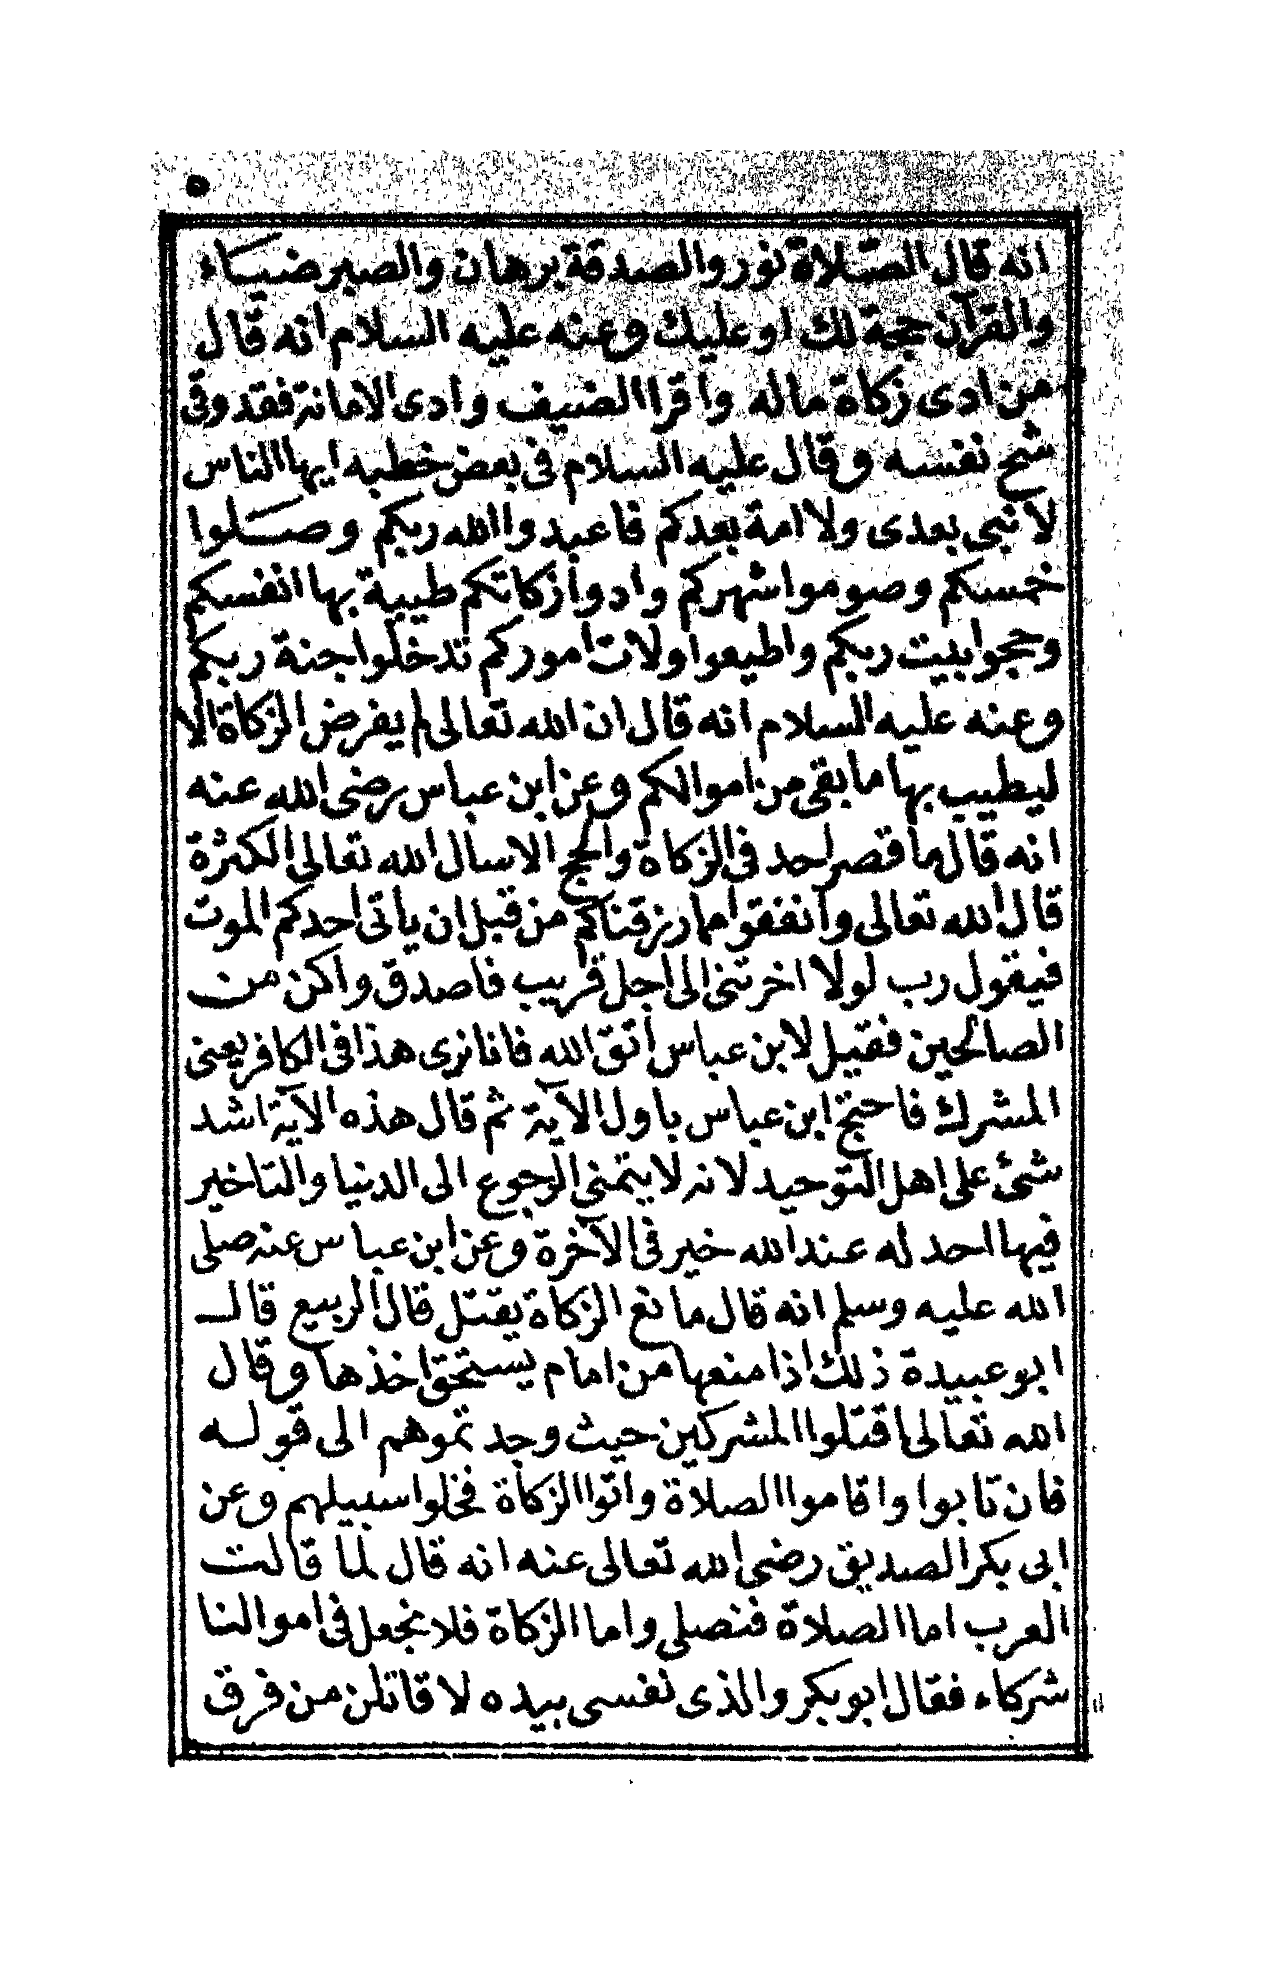 ٥
انه قال الصلاة نور والصدقة برهان والصبر ضياء
والقرآن حجة لك او عليك وعنه عليه السلام انه قال
من ادى زكاة ماله واقرا الضيف وادى الامانة فقد وقى
شح نفسه وقال عليه السلام فى بعض خطبه ايها الناس
لا نبى بعدى ولا امة بعدكم فاعبدوا الله ربكم وصلوا
خمسكم وصوموا شهركم وادوا زكاتكم طيبة بها انفسكم
وحجوا بيت ربكم واطيعوا ولات اموركم تدخلوا جنة ربكم
وعنه عليه السلام انه قال ان الله تعالى لم يفرض الزكاة الا
ليطيب بها ما بقى من اموالكم وعن ابن عباس رضى الله عنه
انه قال ما قصر احد فى الزكاة والحج الا سال الله تعالى الكثرة
قال الله تعالى وانفقوا مما رزقناكم من قبل ان ياتى احدكم الموت
فيقول رب لولا اخرتنى الى اجل قريب فاصدق واكن من
الصالحين فقيل لابن عباس اتق الله فانا نرى هذا فى الكافر يعنى
المشرك فاحتج ابن عباس باول الآية ثم قال هذه الآية اشد
شئ على اهل التوحيد لانه لا يتمنى الرجوع الى الدنيا والتاخير
فيها احد له عند الله خير فى الآخرة وعن ابن عباس عنه صلى
الله عليه وسلم انه قال مانع الزكاة يقتل قال الربيع قال
ابو عبيدة ذلك اذا منعها من امام يستحق اخذها وقال
الله تعالى اقتلوا المشركين حيث وجدتموهم الى قوله
فان تابوا واقاموا الصلاة واتوا الزكاة فخلوا سبيلهم وعن
ابى بكر الصديق رضى الله تعالى عنه انه قال لما قالت
العرب اما الصلاة فنصلى واما الزكاة فلا نجعل فى اموالنا
شركاء فقال ابو بكر والذى نفسى بيده لا قاتلن من فرق